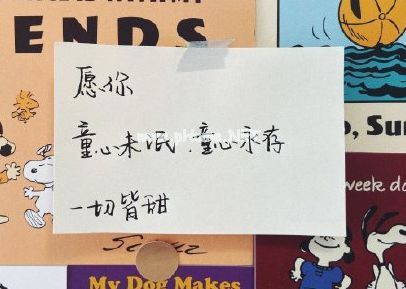 ENDS
愿你
童心未泯.童心永存
一切皆甜
o, Sur
week do
My Dog Makes